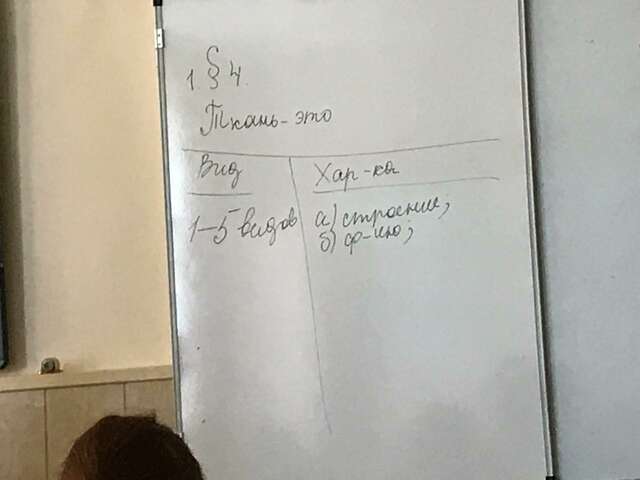 1. § 4.
Ткань - это
Вид
Хар-ка
1-5 видов
а) строение;
б) ф-ию;